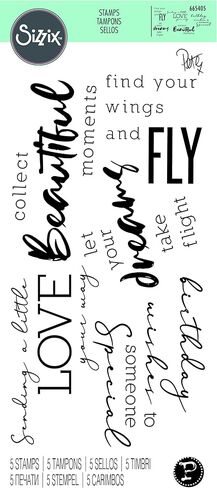 Sizzix
STAMPS
TAMPONS
SELLOS
665405
Pete
find your
wings
and FLY
collect
Beautiful
moments
let
your
dreams
take
flight
Sending a little
LOVE
your way
birthday
wishes to
someone
Special
5 STAMPS | 5 TAMPONS | 5 SELLOS | 5 TIMBRI
5 ПЕЧАТИ | 5 STEMPEL | 5 CARIMBOS